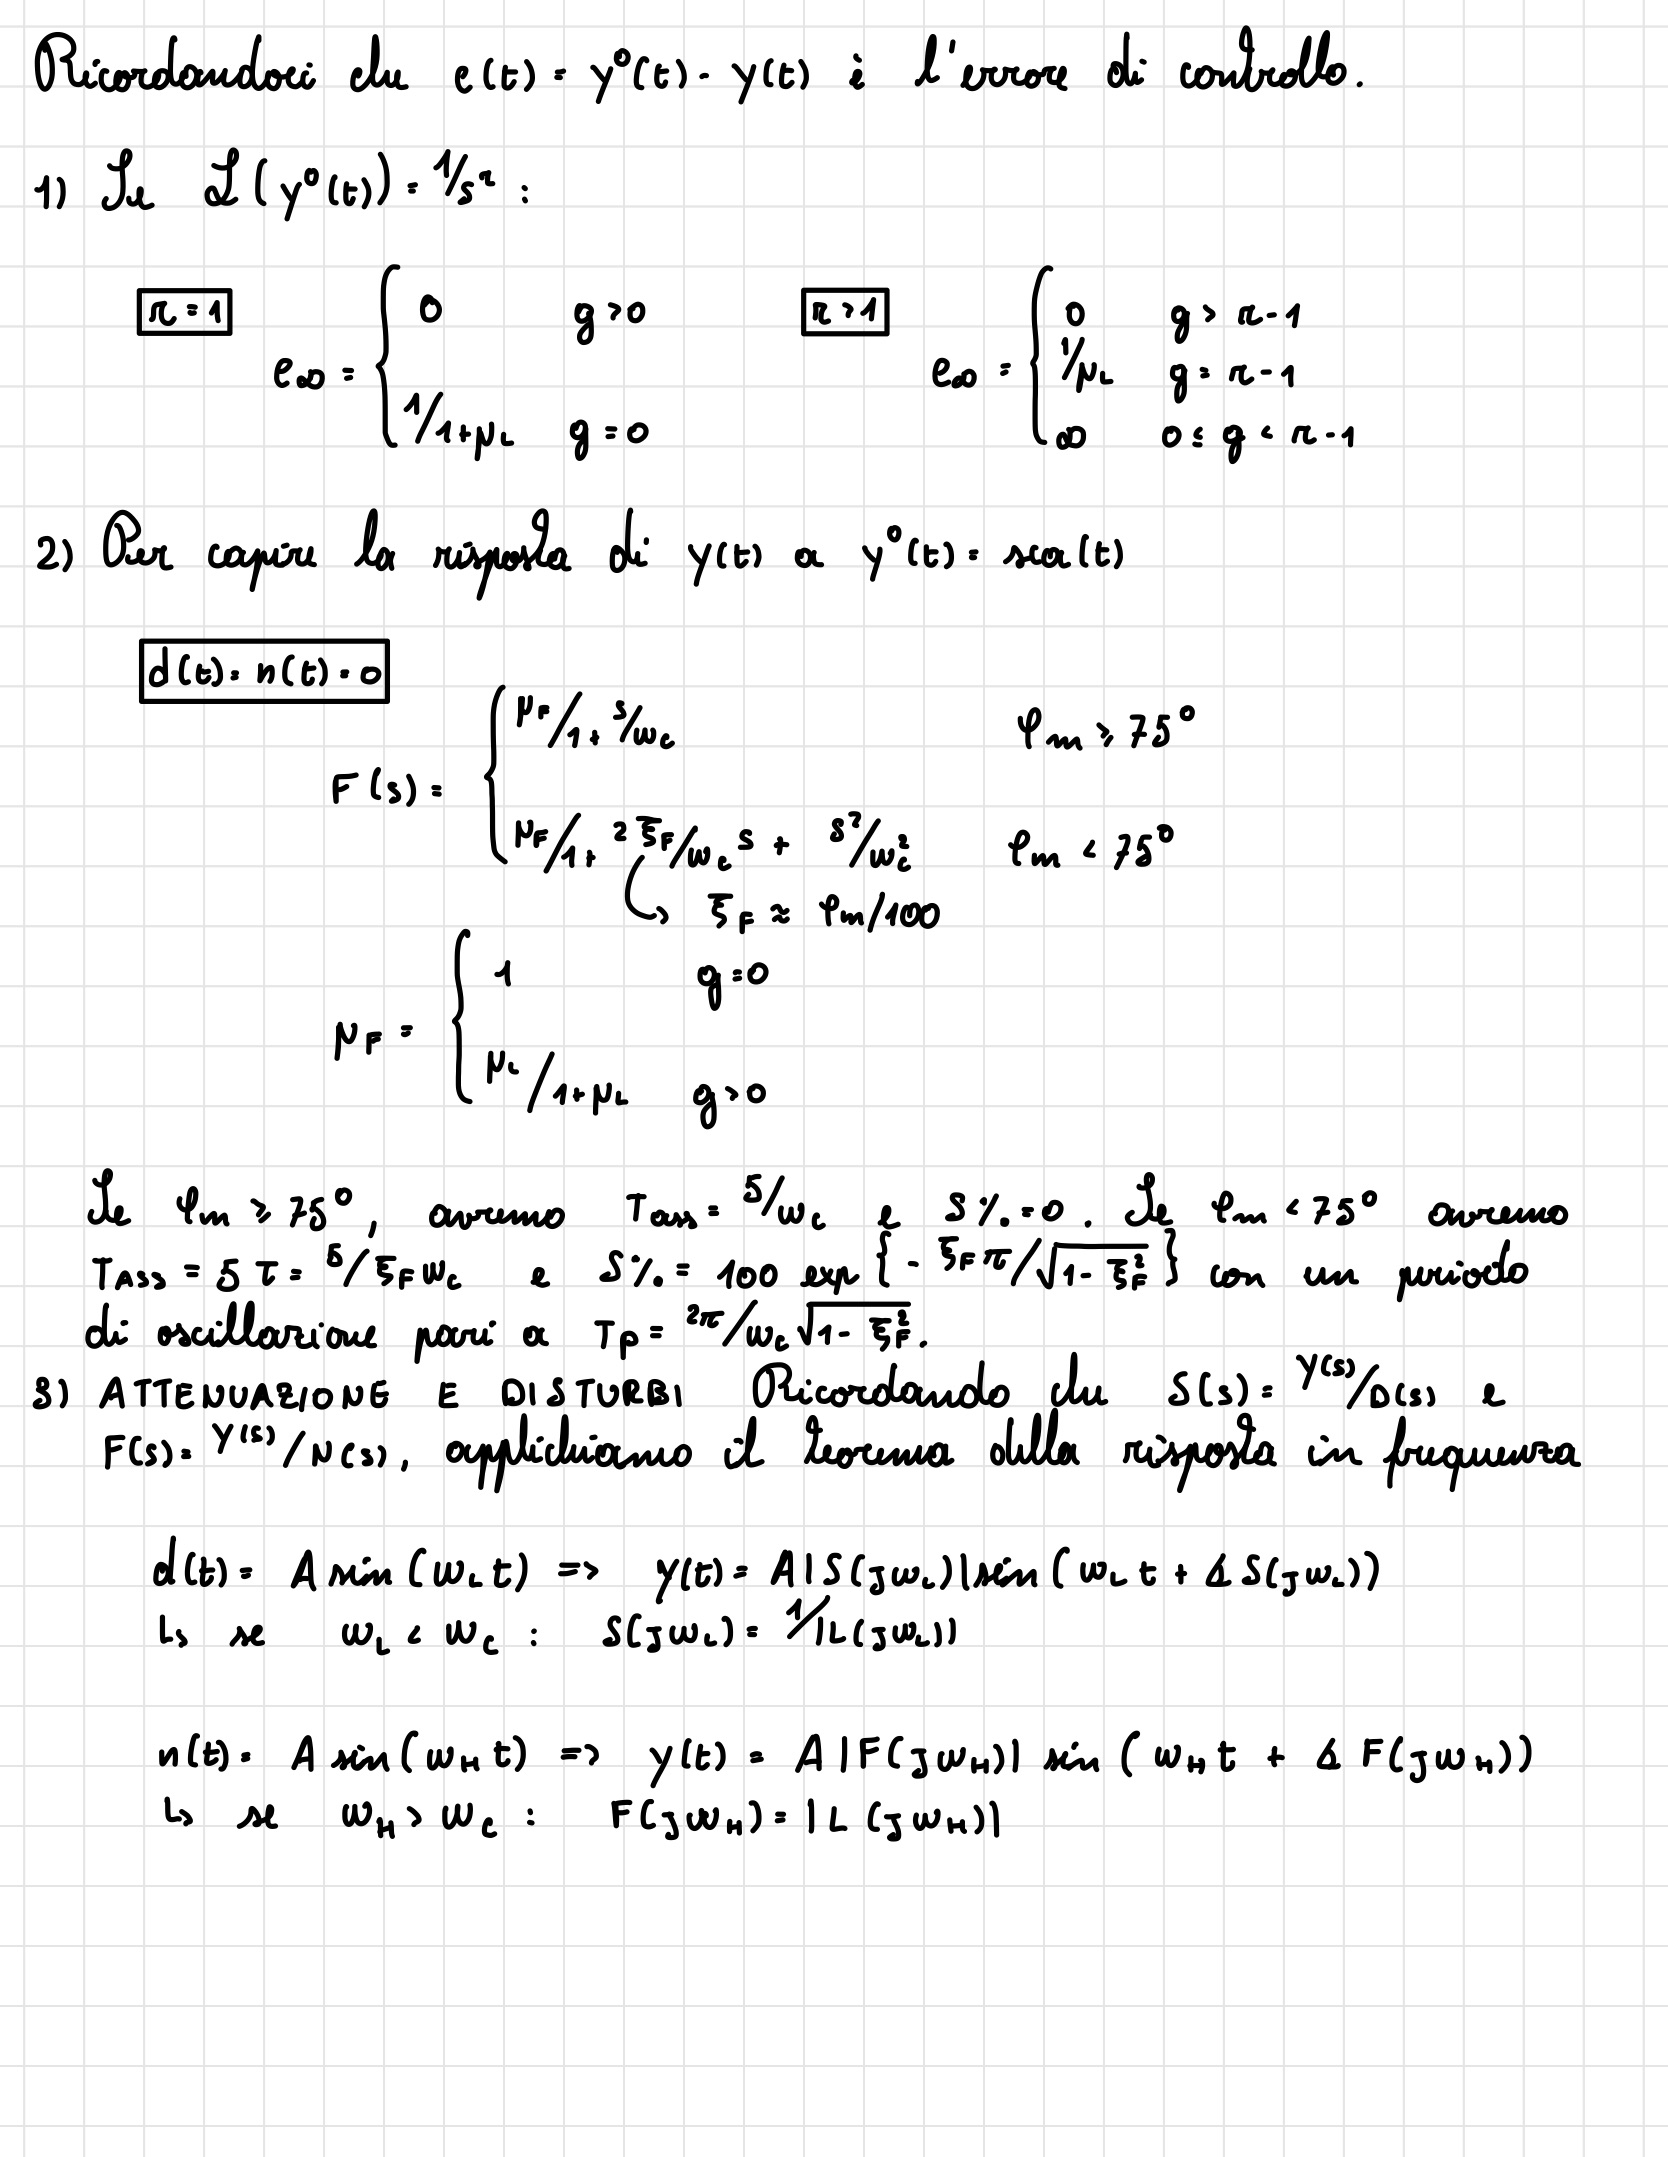 Ricordandoci che e(t) = y⁰(t) - y(t) è l'errore di controllo.
1) Se ℒ(y⁰(t)) = 1/sʳ :
r = 1 e∞ = { 0 g > 0
1/1+μL g = 0
r > 1 e∞ = { 0 g > r - 1
1/μL g = r - 1
∞ 0 ≤ g < r - 1
2) Per capire la risposta di y(t) a y⁰(t) = sca(t)
d(t) = n(t) = 0
F(s) = { μF/1 + s/ωc φm ≥ 75°
μF/1 + 2ξF/ωc s + s²/ωc² φm < 75°
↳ ξF ≈ φm/100
μF = { 1 g = 0
μL/1+μL g > 0
Se φm ≥ 75°, avremo Tass = 5/ωc e S% = 0. Se φm < 75° avremo
TASS = 5τ = 5/ξFωc e S% = 100 exp{- ξFπ/√1 - ξF²} con un periodo
di oscillazione pari a Tp = 2π/ωc√1 - ξF².
3) ATTENUAZIONE E DISTURBI Ricordando che S(s) = Y(s)/D(s) e
F(s) = Y(s)/N(s), applichiamo il teorema della risposta in frequenza
d(t) = A sin(ωL t) => y(t) = A|S(jωL)|sin(ωL t + ∡ S(jωL))
↳ se ωL < ωc : S(jωL) = 1/|L(jωL)|
n(t) = A sin(ωH t) => y(t) = A|F(jωH)| sin(ωH t + ∡ F(jωH))
↳ se ωH > ωc : F(jωH) = |L(jωH)|